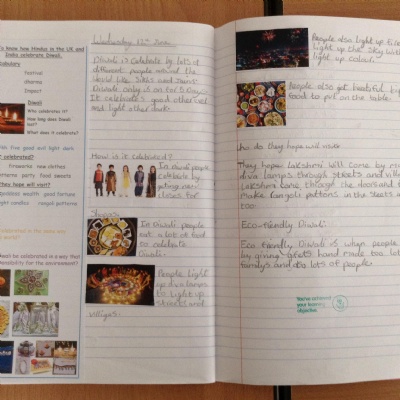 's know how Hindus in the UK and
India celebrate Diwali.
festival
dharma
Impact
Diwali
Who celebrates it?
How long does Diwali
last?
What does it celebrate?
five good evil light dark
celebrated?
fireworks new clothes
parties party food sweets
they hope will visit?
good fortune
candles rangoli patterns
be celebrated in a way that
for the environment?
Wednesday 12th June
Diwali is Celebrate by lots of
different people around the
world like Sikhs and Jains.
Diwali only is on for 5 Day.
It celebrate's good other evil
and light other dark.
How is it celebrated?
In diwali people
celebrate by
geting new
clothes for
In Diwali people
eat a lot of food
to celebrate
Diwali.
People light
up diva lamps
to light up
streets and
villigas.
People also light up fire
light up the sky with
light up colour.
People also get beatiful big
food to put on the table.
who do they hope will
They hope Lakshmi will come by
diva lamps through streets and
Lakshmi come through the doors and
make rangoli pattons in the
too.
Eco-friendly Diwali
Eco friendly Diwali is when people
by giving gifts hand made too
familys and too lots of people.
You've achieved
your learning
objective.